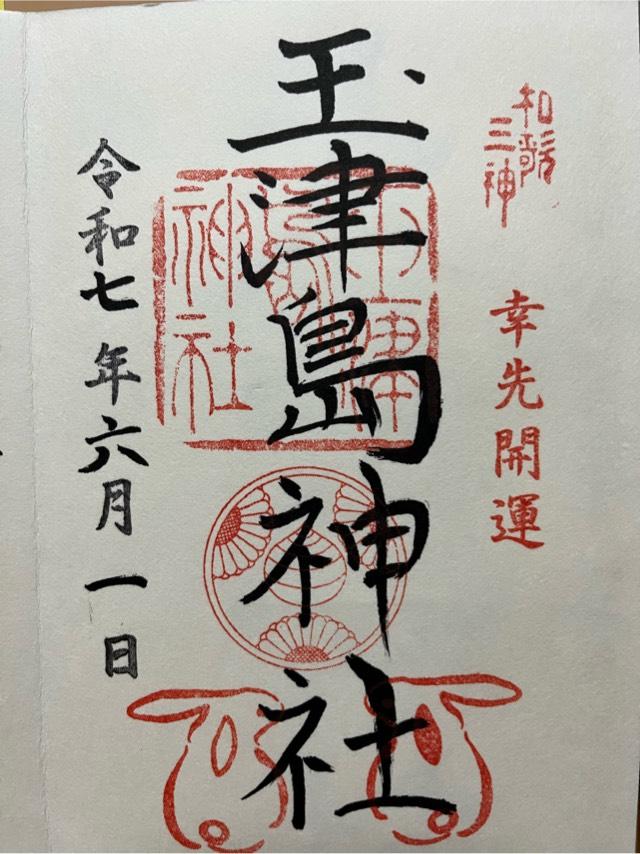 和歌
三神
幸先開運
玉津島神社
玉津
島
神社
令和七年六月一日